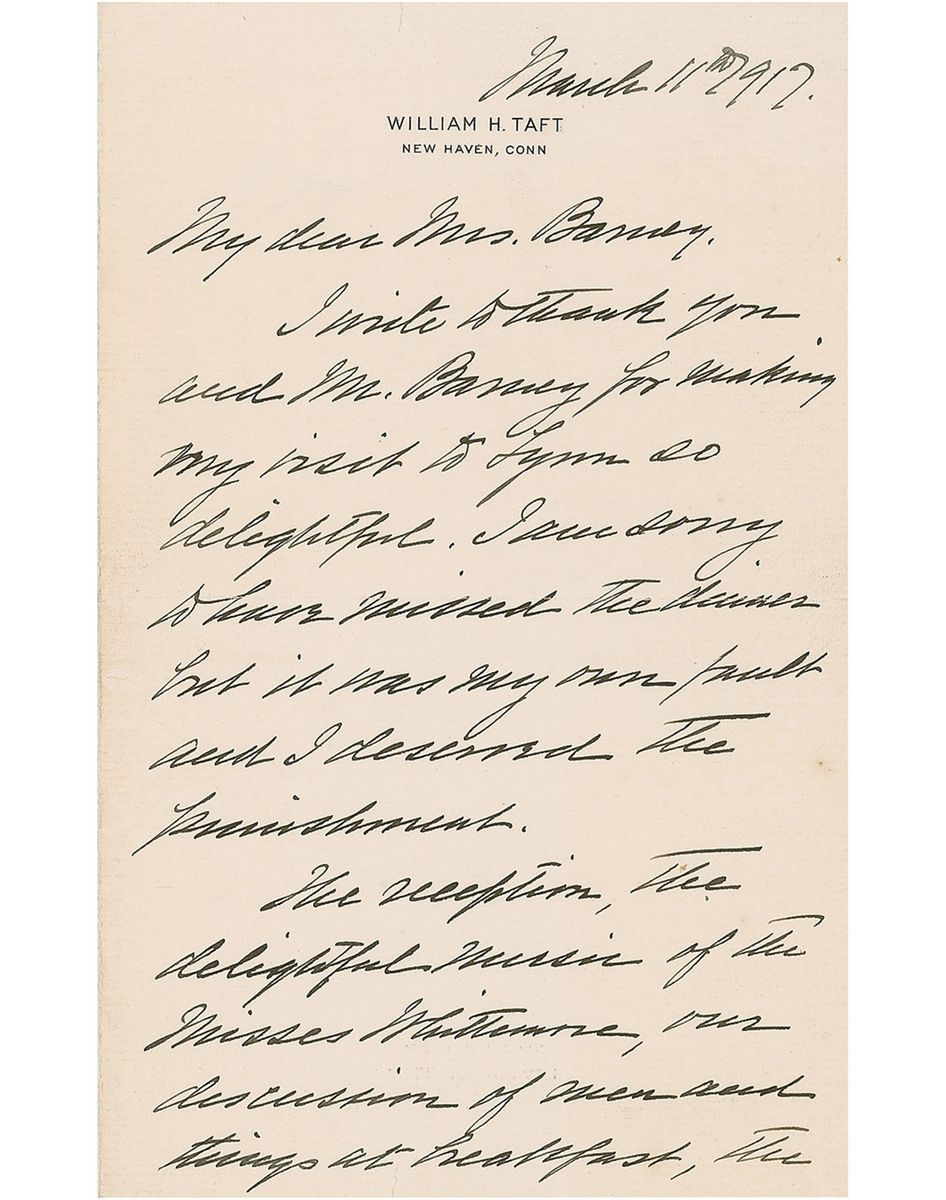 March 11th 1917.
WILLIAM H. TAFT
NEW HAVEN, CONN
My dear Mrs. Barney.
I write to thank you
and Mr. Barney for making
my visit to Lynn so
delightful. I am sorry
to have missed the dinner
but it was my own fault
and I deserved the
punishment.
The reception, the
delightful music of the
Misses Whittemore, our
discussion of men and
things at breakfast, the